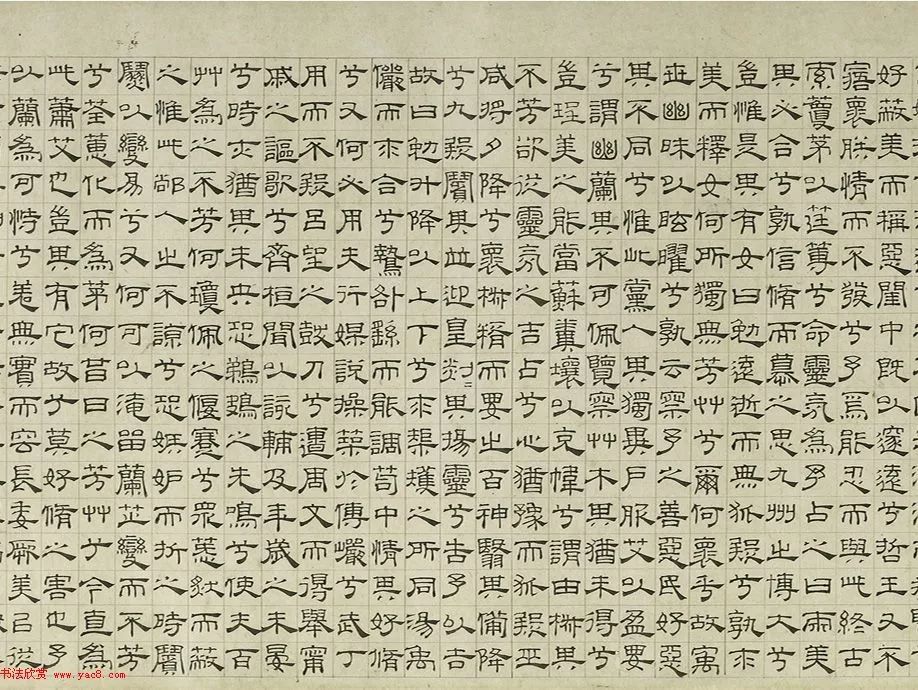 好蔽美而稱惡閨中既以邃遠兮哲王又不
寤懷朕情而不發兮予焉能忍而與此終古
索藑茅以筳篿兮命靈氛為予占之曰兩美
其必合兮孰信脩而慕之思九州之博大兮
豈惟是其有女曰勉遠逝而無狐疑兮孰求
美而釋女何所獨無芳艸兮爾何懷乎故宇
世幽昧以眩曜兮孰云察予之善惡民好惡
其不同兮惟此黨人其獨異戶服艾以盈要
兮謂幽蘭其不可佩覽察艸木其猶未得兮
豈珵美之能當蘇糞壤以充幃兮謂申椒其
不芳欲從靈氛之吉占兮心猶豫而狐疑巫
咸將夕降兮懷椒糈而要之百神翳其備降
兮九疑繽其並迎皇剡〻其揚靈兮告予以吉
故曰勉升降以上下兮求榘矱之所同湯禹
儼而求合兮摯咎繇而能調苟中情其好脩
兮又何必用夫行媒說操築於傅巖兮武丁
用而不疑呂望之鼓刀兮遭周文而得舉甯
戚之謳歌兮齊桓聞以該輔及年歲之未晏
兮時亦猶其未央恐鵜鴂之先鳴兮使夫百
艸為之不芳何瓊佩之偃蹇兮眾薆然而蔽
之惟此鄗人之不諒兮恐嫉妒而折之時繽
紛以變易兮又何可以淹留蘭芷變而不芳
兮荃蕙化而為茅何昔日之芳艸兮今直為
此蕭艾也豈其有它故兮莫好脩之害也予
以蘭為可恃兮羌無實而容長委厥美以從
书法欣赏 www.yac8.com